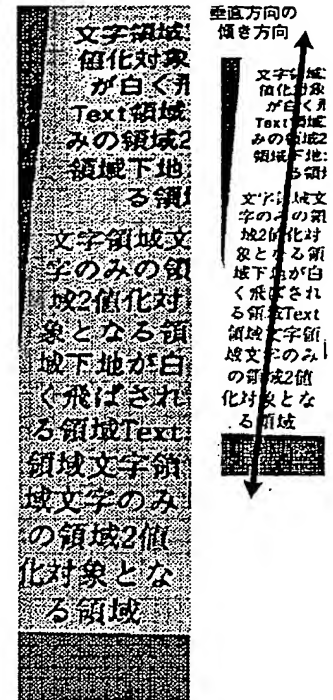 文字領域
値化対象
が白く飛
Text領域
みの領域2
領域下地
る領
文字領域文
字のみの領
域2値化対
象となる領
域下地が白
く飛ばされ
る領域Text
領域文字領
域文字のみ
の領域2値
化対象とな
る領域
垂直方向の
傾き方向
文字領域
値化対象
が白く飛
Text領域
みの領域2
領域下地
る領
文字領域文
字のみの領
域2値化対
象となる領
域下地が白
く飛ばされ
る領域Text
領域文字領
域文字のみ
の領域2値
化対象とな
る領域